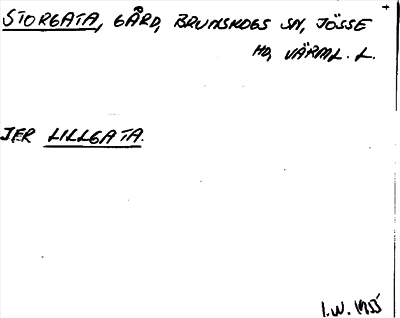 STORGATA, GÅRD, BRUNSKOGS SN, JÖSSE
HD, VÄRML. L.
JFR LILLGATA.
I.W. 1955